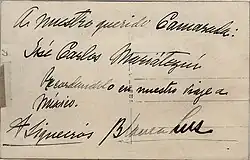 A nuestro querido Camarada:
José Carlos Mariátegui
Recordandolo en nuestro viaje a
México.
A Siqueiros Blanca Luz